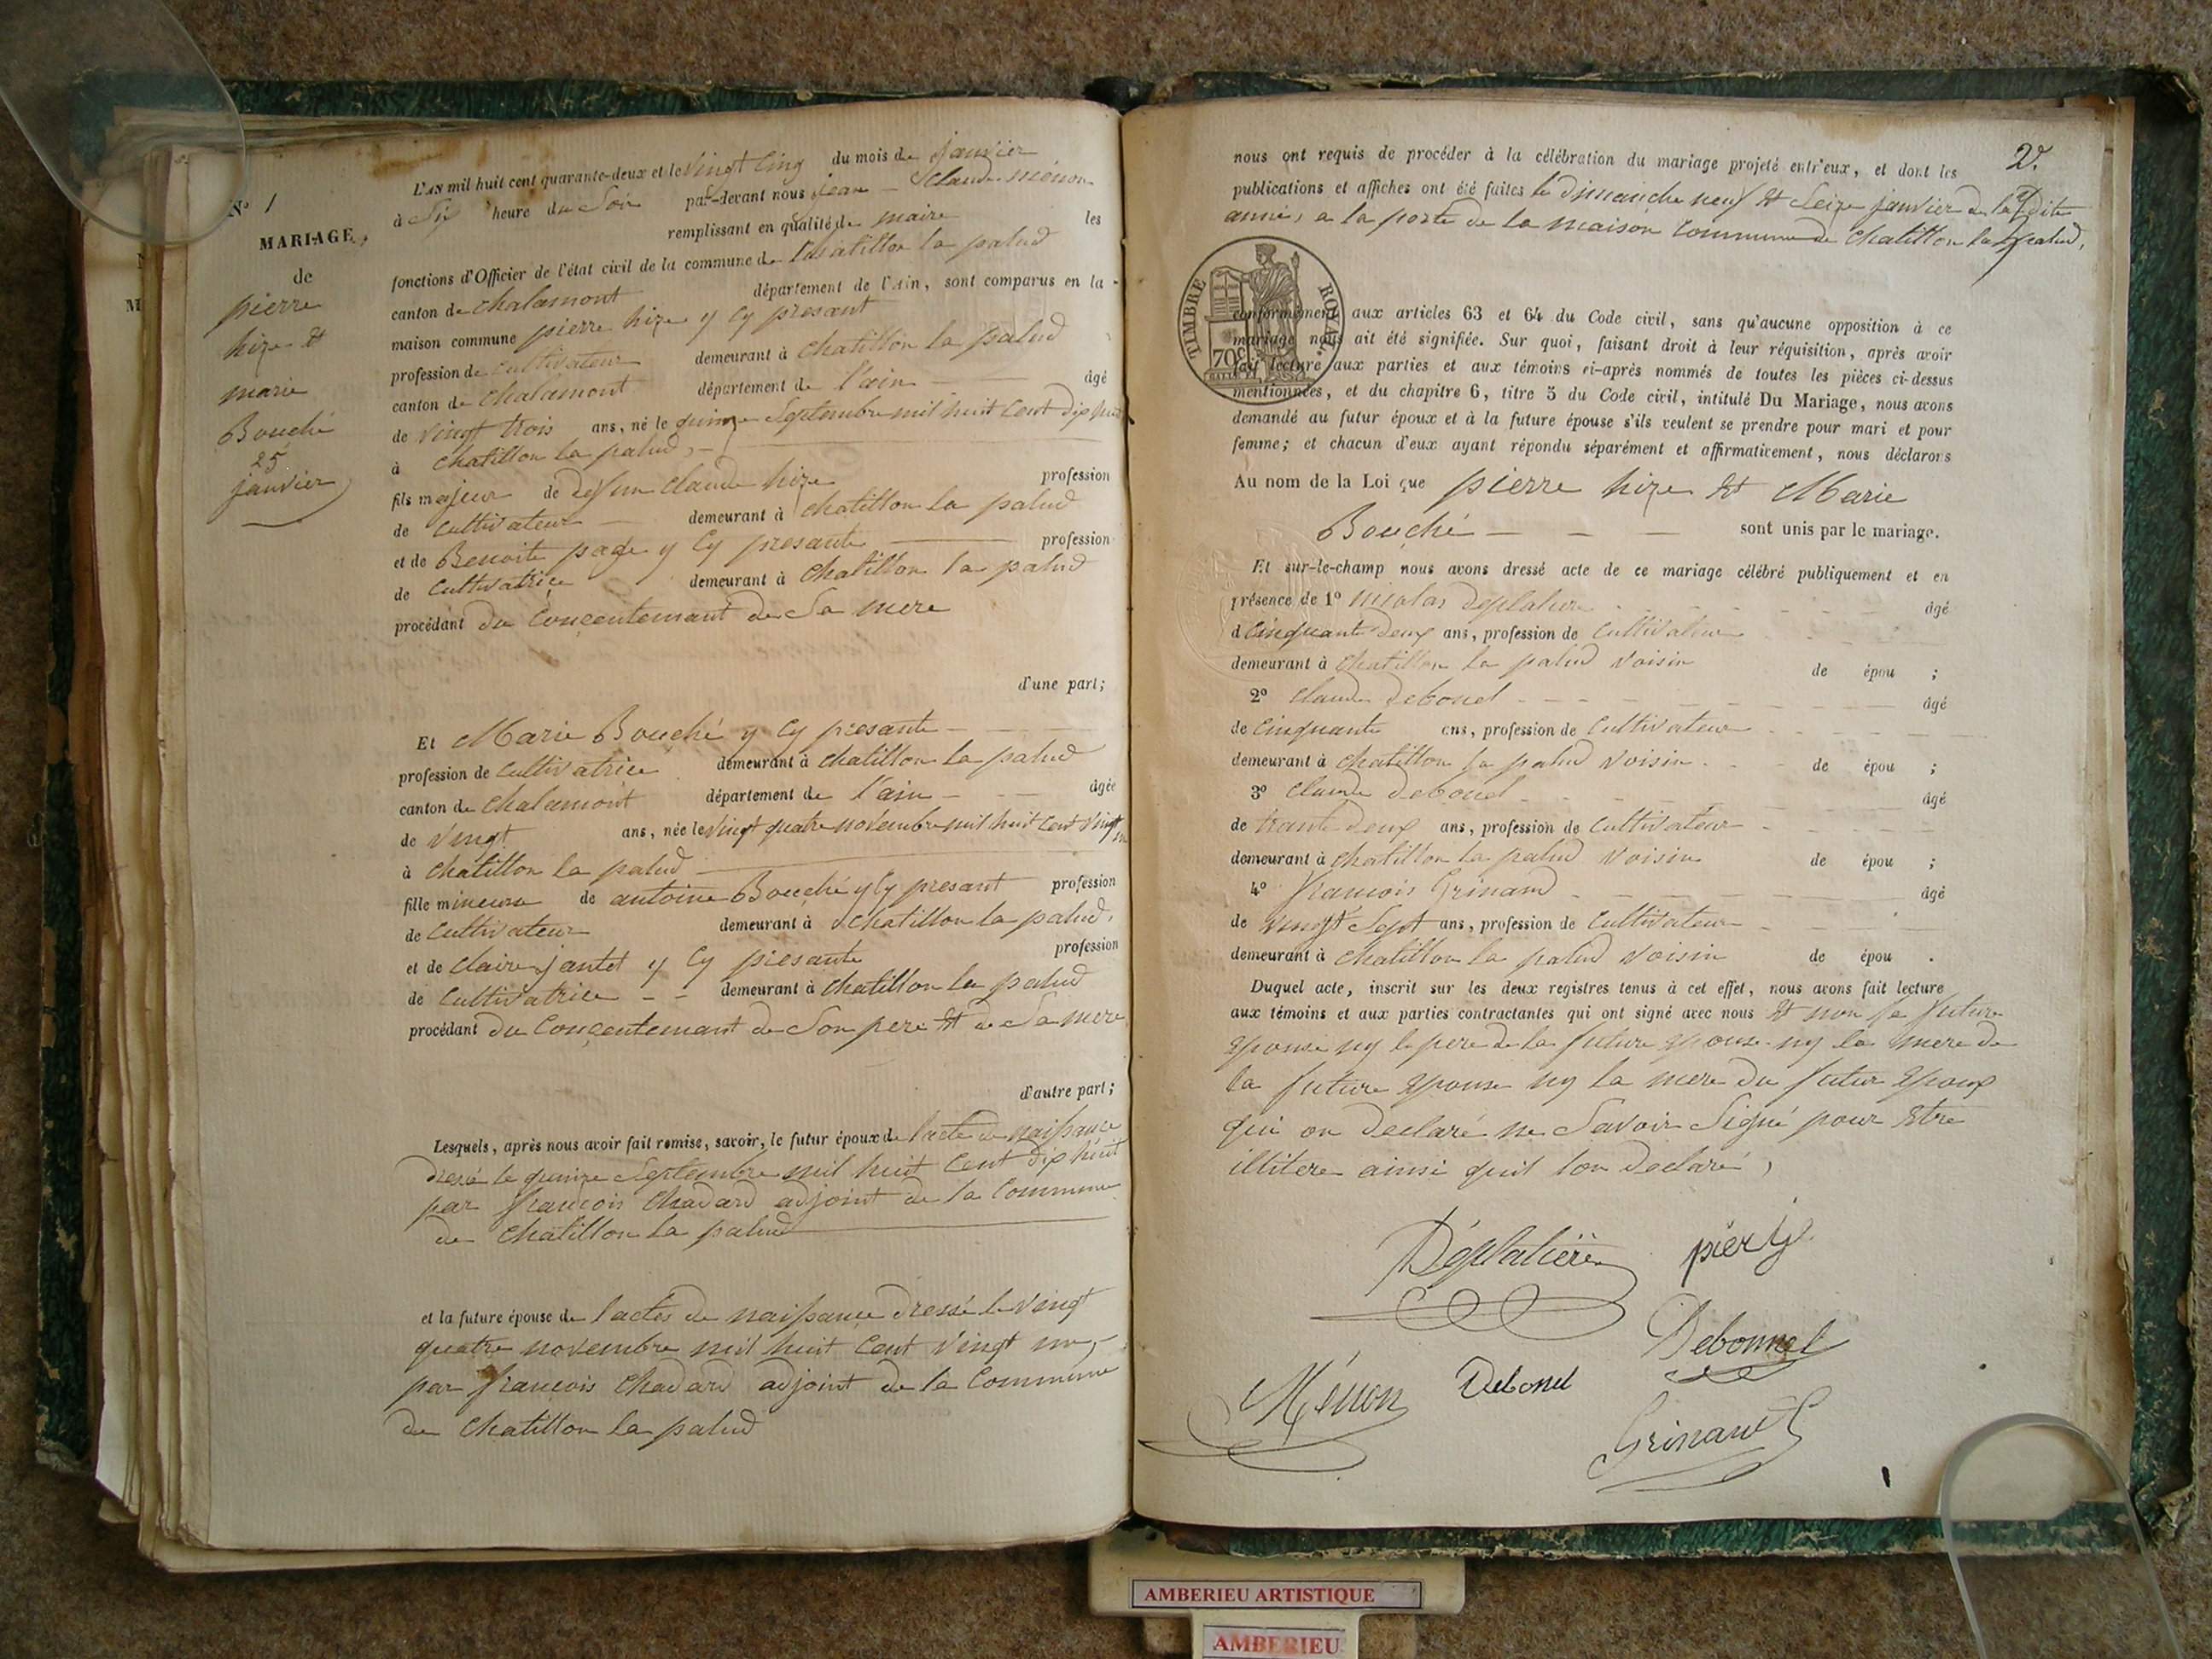 N° 1
MARIAGE,
de
pierre
hize et
marie
Bouché
25
janvier
L'AN mil huit cent quarante-deux et le vingt Cinq du mois de janvier
à Six heure du Soir par-devant nous jean - Claude ménon
remplissant en qualité de maire les
fonctions d'Officier de l'état civil de la commune de Chatillon la palud
canton de chalamont département de l'Ain, sont comparus en la
maison commune pierre hize y Cy presant
profession de cultivateur demeurant à chatillon la palud
canton de chalamont département de l'ain âgé
de vingt trois ans, né le quinze Septembre mil huit cent dix huit
à chatillon la palud,
fils majeur de deffun claude hize profession
de cultivateur demeurant à chatillon la palud
et de Benoite page y Cy presante profession
de Cultivatrice demeurant à chatillon la palud
procédant du Conçentemant de Sa mere
d'une part;
Et Marie Bouché y Cy presante
profession de Cultivatrice demeurant à chatillon la palud
canton de chalamont département de l'ain âgée
de vingt ans, née le vingt quatre novembre mil huit cent vingt un
à chatillon la palud
fille mineure de antoine Bouché y Cy presant profession
de Cultivateur demeurant à chatillon la palud,
et de claire jantet y Cy presante profession
de Cultivatrice demeurant à chatillon la palud
procédant du Conçentemant de Son pere et de Sa mere
d'autre part;
Lesquels, après nous avoir fait remise, savoir, le futur époux de l'acte de naissance
dressé le quinze Septembre mil huit Cent dix huit
par françois Chadard adjoint de la Commune
de Chatillon la palud
et la future épouse de l'actes de naissance dressé le vingt
quatre novembre mil huit Cent vingt un,
par françois Chadard adjoint de la Commune
de Chatillon la palud
2
nous ont requis de procéder à la célébration du mariage projeté entr'eux, et dont les
publications et affiches ont été faites le dimanche neuf et Seize janvier de la dite
année, a la porte de la maison Commune de Chatillon la palud,
TIMBRE ROYAL
70c
conformément aux articles 63 et 64 du Code civil, sans qu'aucune opposition à ce
mariage nous ait été signifiée. Sur quoi, faisant droit à leur réquisition, après avoir
fait lecture aux parties et aux témoins ci-après nommés de toutes les pièces ci-dessus
mentionnées, et du chapitre 6, titre 5 du Code civil, intitulé Du Mariage, nous avons
demandé au futur époux et à la future épouse s'ils veulent se prendre pour mari et pour
femme; et chacun d'eux ayant répondu séparément et affirmativement, nous déclarons
Au nom de la Loi que pierre hize et Marie
Bouché sont unis par le mariage.
Et sur-le-champ nous avons dressé acte de ce mariage célébré publiquement et en
présence de 1° nicolas Deplatiere âgé
d Cinquante deux ans, profession de Cultivateur
demeurant à chatillon la palud voisin de épou ;
2° claude Debonel âgé
de Cinquante ans, profession de Cultivateur
demeurant à chatillon la palud voisin de épou ;
3° claude Debonel âgé
de trante deux ans, profession de Cultivateur
demeurant à chatillon la palud voisin de épou ;
4° françois Grinand âgé
de vingt Sept ans, profession de Cultivateur
demeurant à chatillon la palud voisin de épou .
Duquel acte, inscrit sur les deux registres tenus à cet effet, nous avons fait lecture
aux témoins et aux parties contractantes qui ont signé avec nous et non la future
Epouse ny le pere de la future epouse ny la mere de
la future Epouse ny la mere du futur Epoux
qui on declaré ne Savoir Signé pour Etre
illitere ainsi quil lon Declaré,
Déplatière
Debonnel
Ménon Debonel
Grinand
AMBERIEU ARTISTIQUE
AMBERIEU